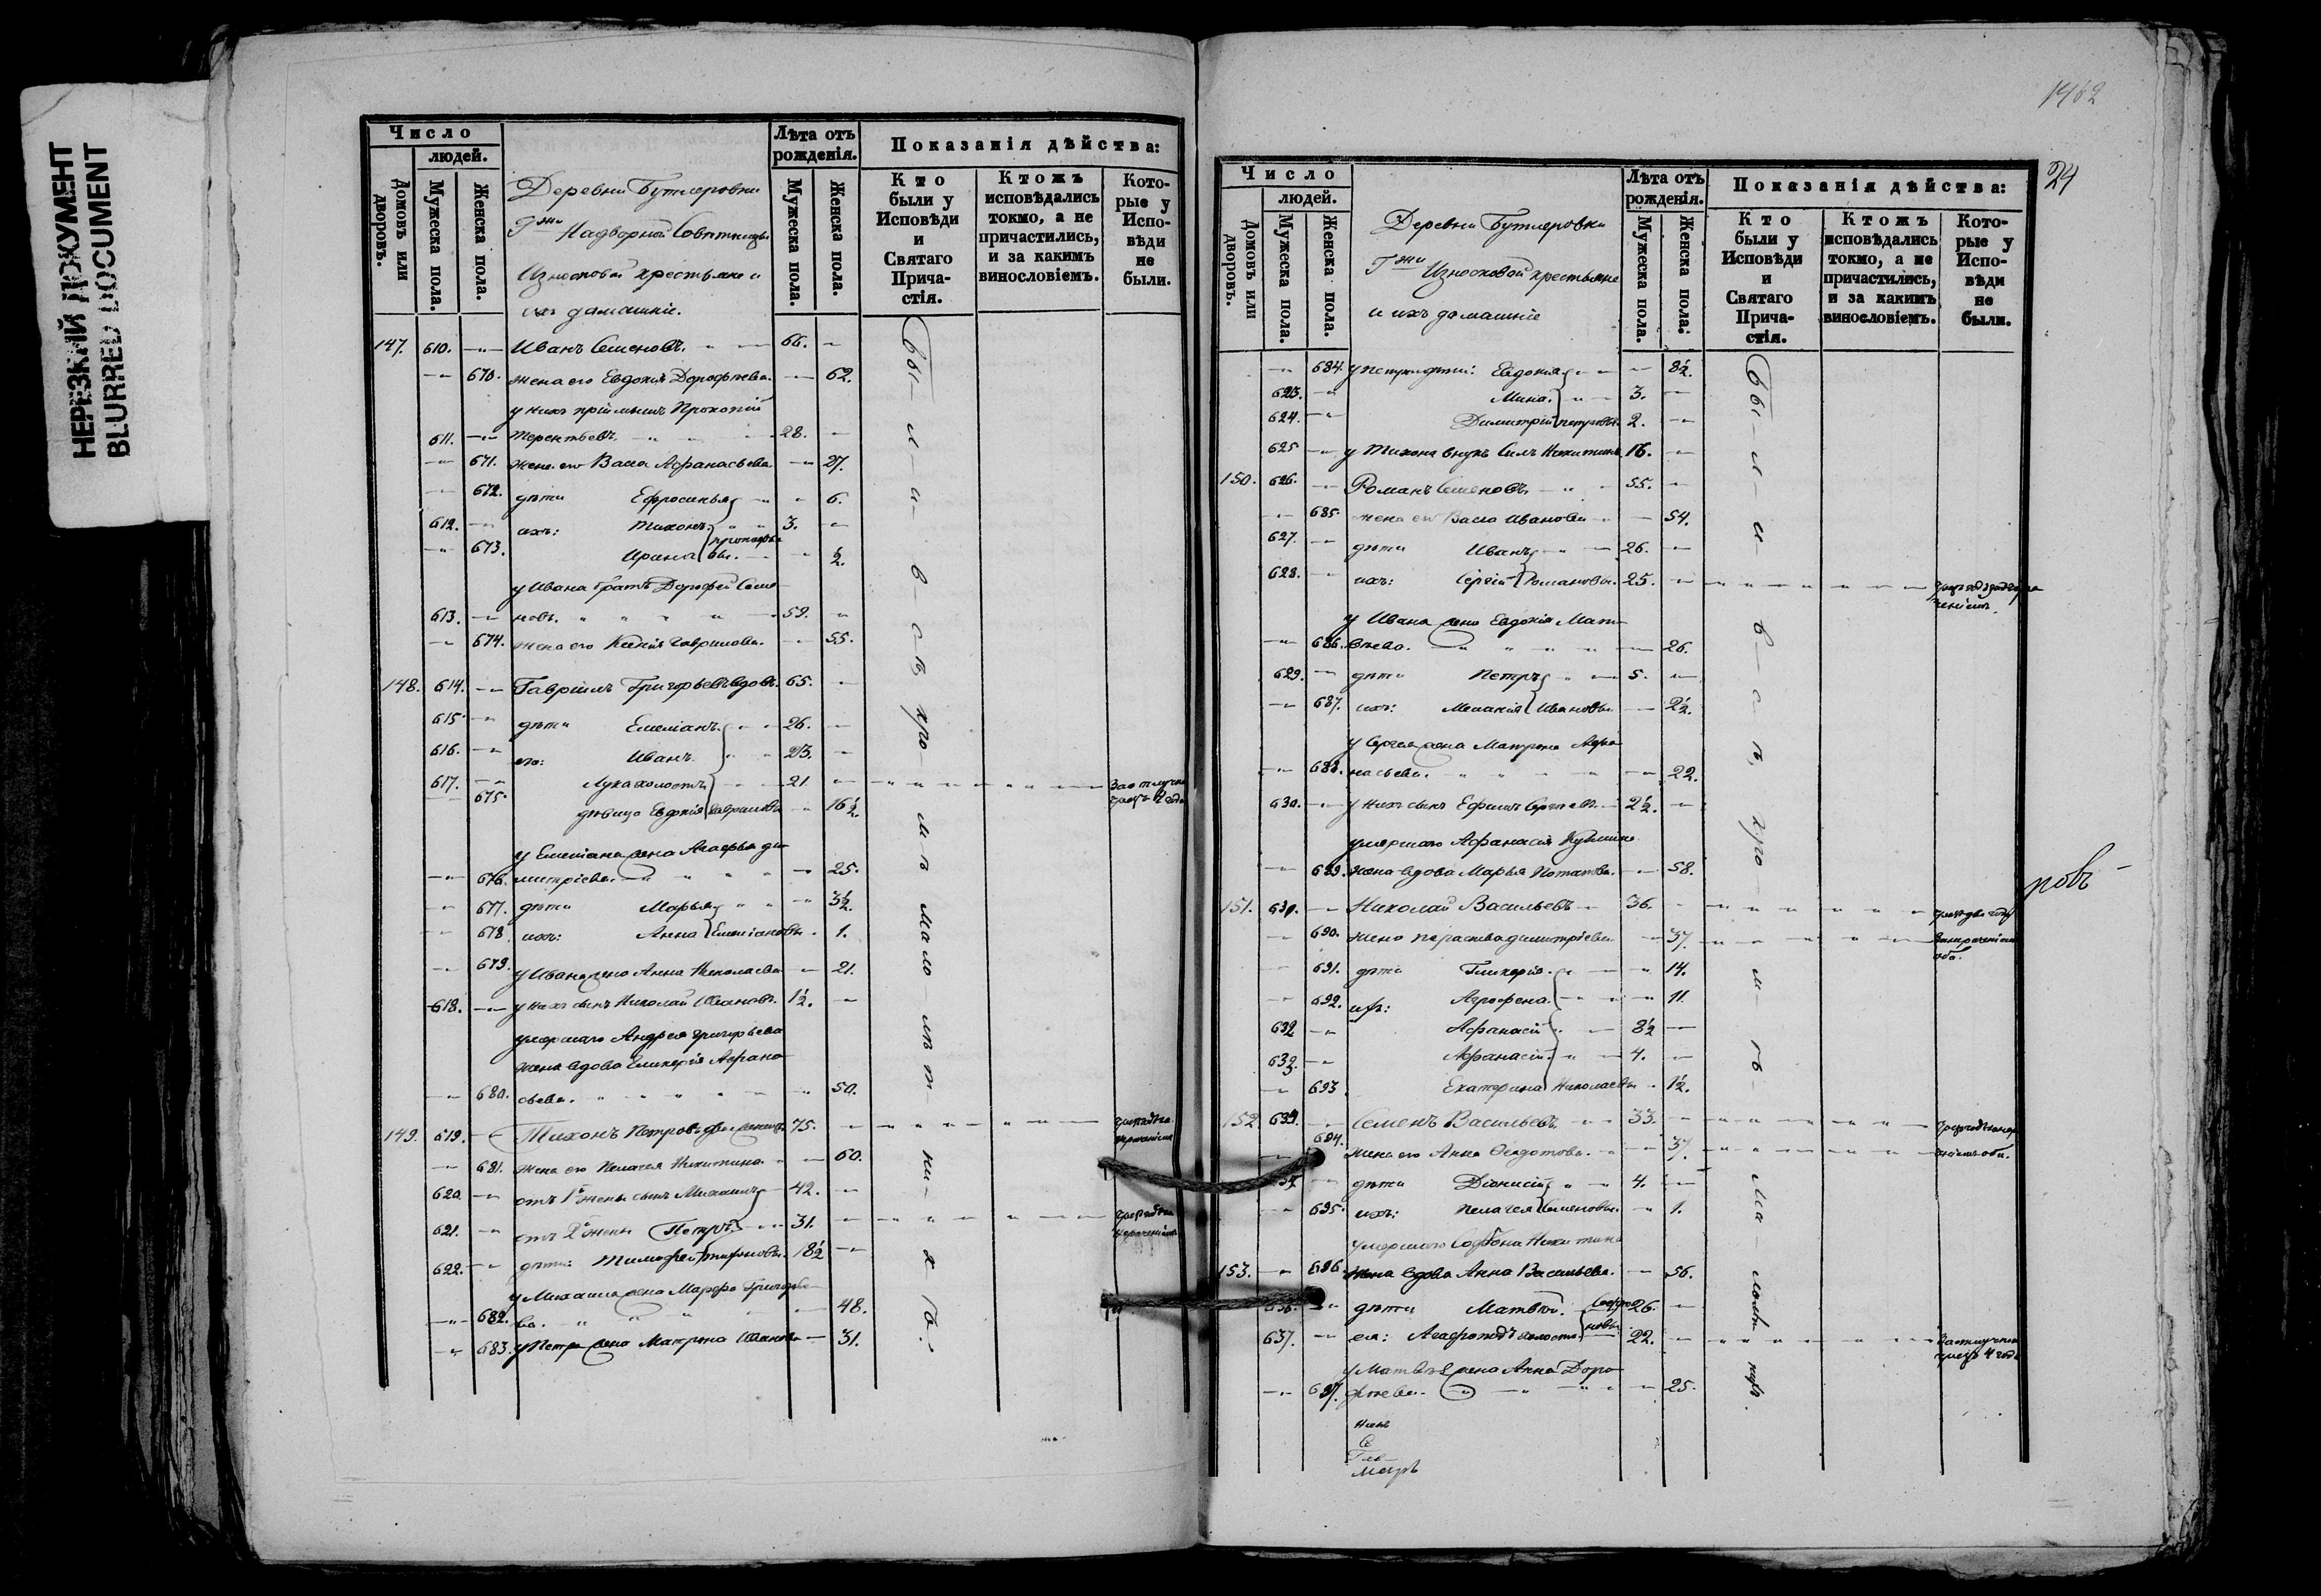 НЕРЕЗКИЙ ДОКУМЕНТ
BLURRED DOCUMENT
Число
людей.
Домовъ или дворовъ.
Мужеска пола.
Женска пола.
Деревни Бутлеровки
Г-жи Надворной Совѣтницы
Износковой крестьяне и
ихъ домашніе.
Лѣта отъ рожденія.
Мужеска пола.
Женска пола.
Показанія дѣйства:
Кто были у Исповѣди и Святаго Причастія.
Ктожъ исповѣдались токмо, а не причастились, и за какимъ винословіемъ.
Которые у Исповѣди не были.
147. 610. Иванъ Семеновъ. 66.
670. жена его Евдокія Дорофѣева. 62.
у нихъ пріемышъ Прокопій
611. Терентьевъ. 28.
671. жена его Васса Афанасьева. 27.
672. дѣти Ефросинья 6.
612. ихъ: Тихонъ 3.
673. Ирина Прокопьевы. ½.
у Ивана братъ Дорофей Семе
613. новъ. 59.
674. жена его Ксенія Гаврилова. 55.
148. 614. Гавріилъ Григорьевъ вдовъ. 65.
615. дѣти Емеліанъ 26.
616. его: Иванъ 23.
617. Лука холостъ 21. За отлучкою 2 года
675. дѣвица Евдокія Гавриловы 16½.
у Емеліана жена Агафья Ди
676. митріева. 25.
677. дѣти Марья 3½.
678. ихъ: Анна Емеліановы. 1.
679. у Ивана жена Анна Николаева 21.
618. у нихъ сынъ Николай Ивановъ. 1½.
умершаго Андрея Григорьева
жена вдова Гликерія Афана
680. сьева. 50.
149. 619. Тихонъ Петровъ двоеженецъ 75.
681. жена его Пелагея Никитина 60.
620. отъ 1й жены сынъ Михаилъ 42.
621. отъ 2й жены Петръ 31.
622. дѣти: Тимофей Тихоновы. 18½
у Михаила жена Марфа Григорье
682. ва. 48.
683. у Петра жена Матрона Иванова 31.
Были въ св. хра мѣ малолѣтнихъ.
1462
24
Число
людей.
Домовъ или дворовъ.
Мужеска пола.
Женска пола.
Деревни Бутлеровки
Г-жи Износковой крестьяне
и ихъ домашніе
Лѣта отъ рожденія.
Мужеска пола.
Женска пола.
Показанія дѣйства:
Кто были у Исповѣди и Святаго Причастія.
Ктожъ исповѣдались токмо, а не причастились, и за какимъ винословіемъ.
Которые у Исповѣди не были.
684. у Петра дѣти: Евдокія 8½.
623. Мина. 3.
624. Димитрій Петровы. 2.
625 у Тихона внукъ Сила Никитинъ 16.
150. 626. Романъ Семеновъ 55.
685. жена его Васса Иванова 54.
627. дѣти Иванъ 26.
628. ихъ: Сергій Романовы. 25.
у Ивана жена Евдокія Мат
686. вѣева. 26.
629. дѣти Петръ 5.
687. ихъ: Меланія Ивановы 2½.
у Сергея жена Матрона Афа
688. насьева. 22.
630. у нихъ сынъ Ефимъ Сергѣевъ. 2½.
умершаго Афанасія Кузмина
689. жена вдова Марья Потапова. 58.
151. 631. Николай Васильевъ 36.
690. жена Параскева Димитріева 37.
691. дѣти Гликерія. 14.
692. ихъ: Агрофена. 11.
632 Афанасій 8½
633. Афанасій 4.
693 Екатерина Николаевы 1½.
152. 634. Семенъ Васильевъ. 33.
694. жена его Анна Ѳедотова. 37.
дѣти Діонисій 4.
695. ихъ: Пелагея Семеновы. 1.
умершаго Никитина
153. 696 жена вдова Анна Васильева. 56.
дѣти Матвѣй. 26.
637. ея: Агафоподъ холостъ. 22. За отлучкою чрезъ 4 года
у Матвѣя жена Анна Доро
697. фѣева. 25.
новъ